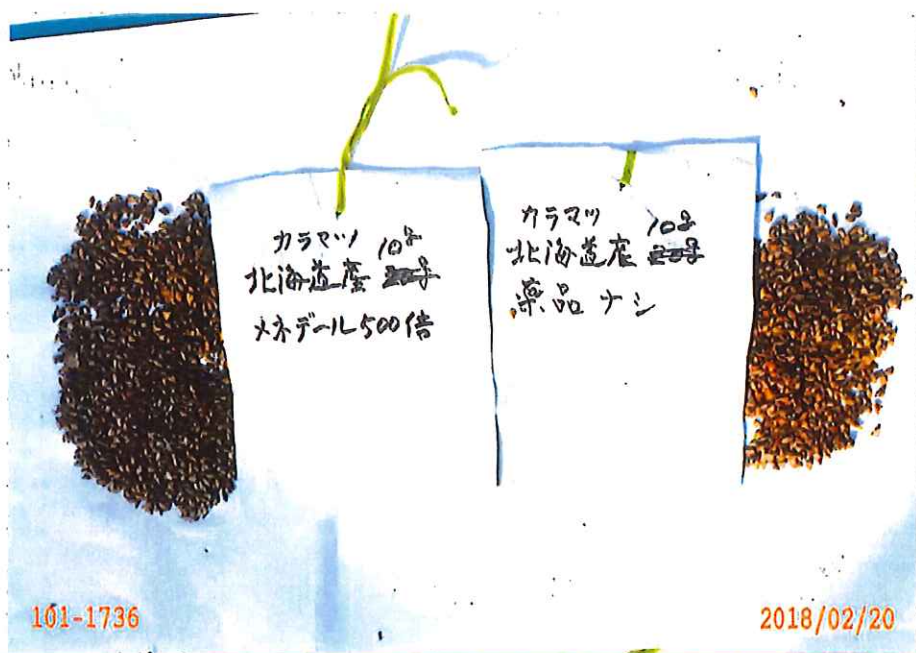 カラマツ
北海道産 10g
メネデール500倍
カラマツ
北海道産 10g
薬品ナシ
101-1736
2018/02/20